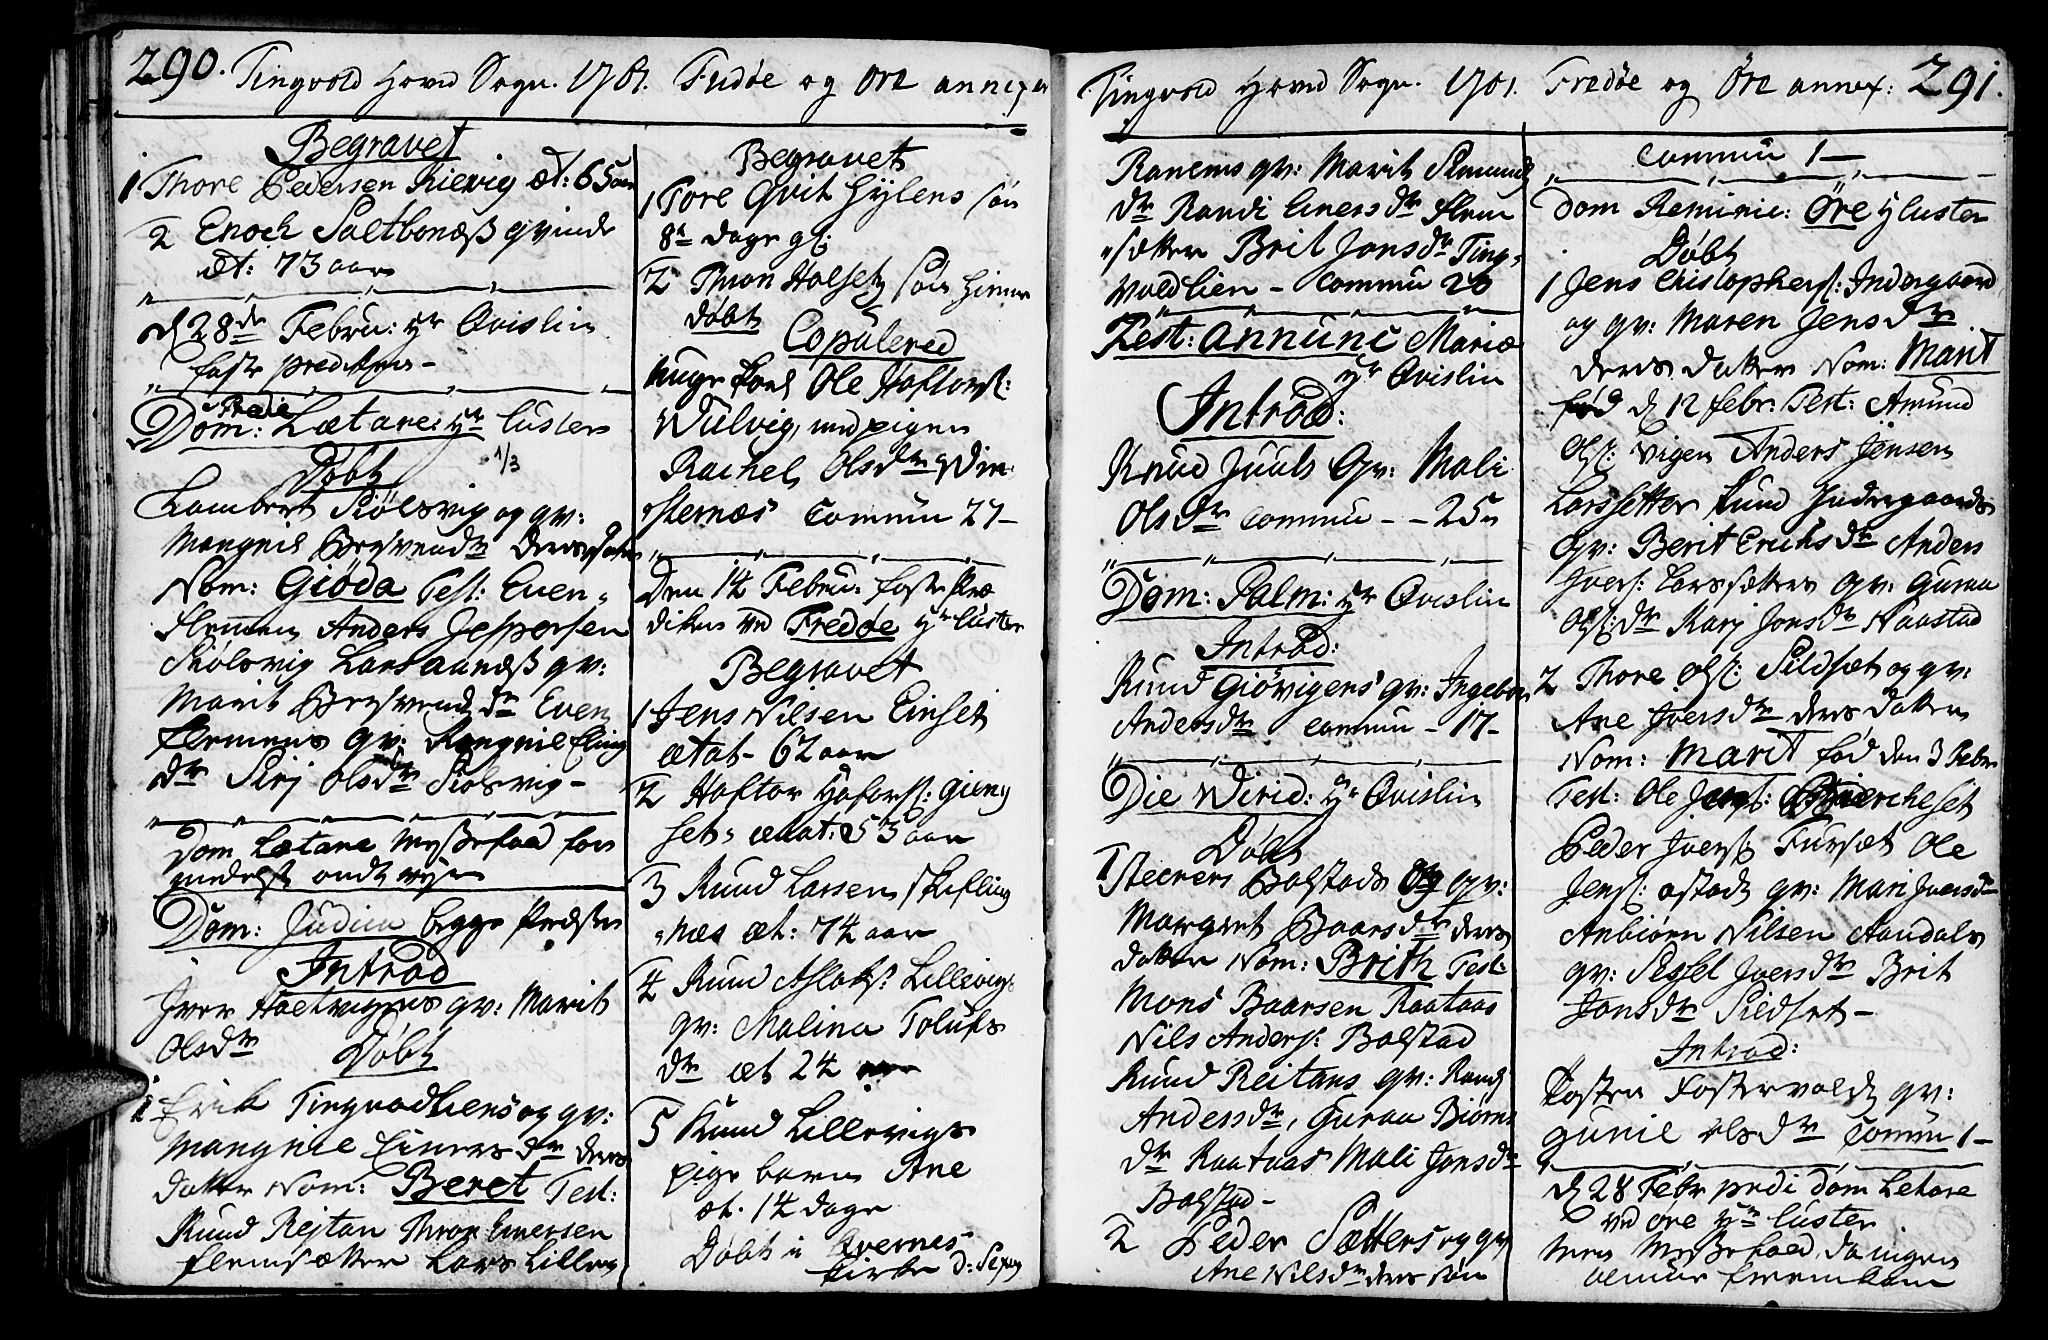 290. Tingvold Hoved Sogn. 1781. Fredøe og Øre annexer
Begravet
1 Thore Pedersen Kievig æt: 65 aar
2 Enoch Saltbonæß qvinde
æt: 73 aar
d 28de Febru: Hr Qvislin
faste prediken -
Dom: Lætare: Hr Luster
1/3
Døbt
Lambert Kiølsvig og qv:
Mangnil Brysvendr deres
Nom: Giöda Test: Even
Flemmen Anders Jespersen
Kiølsvig Lars aanæß qv:
Marit Brysvendr Even
Flemmens qv: Rangnil Elling
dr Sirj Olsdr Kiolsvig -
Dom Lætare Meßefald for
medelst ondt vejr
Dom: Judica begge Præster
Introd
Iver Holtvigens qv: Marit
Olsdr Døbt
1 Erik Tingvoldliens og qv:
Mangnil Einersdr deres
datter Nom: Beret Test:
Knud Rejtan Thron Einersen
Flemsætter Lars Lillev
Begravet
1 Tore Qvithyllens søn
8te dage gl:
2 Thron Holset søn hiemme
døbt
Copulered
unge Karl Ole Hoftors:
Wulvig, med pigen
Rachel Olsdr Vin
sternæs Commun 27 -
Den 14 Febru: faste Præ
diken ved Fredøe Hr Luster
Begravet
1 Jens Nilsen Einset
ætat - 62 aar
2 Hoftor Hafors: Gieng
set, ætat: 53 aar
3 Knud Larsen Skifling
næs æt: 74 aar
4 Knud Aslaks: Lillevigs
qv: Malina Tolufs
dr æt 24
5 Knud Lillevigs
pige barn Ane
æt. 14 dage
Døbt i Qvernes
Kirke D: Sexag
Tingvold Hoved Sogn. 1781. Fredøe og Øre annex: 291.
Ranems qv: Marit Simund
dr Randi Einersdr Flem
sætter Brit Jonsdr Ting
voldlien - Commu 26
Fest: annunc Mariæ
Hr Qvislin
Introd:
Knud Juuls Qv: Mali
Olsdr Commu - - 25
Dom: Palm: Hr Qvislin
Introd:
Knud Giövigens qv: Ingebor
Andersdr commu - 17 -
Die Virid: Hr Qvislin
Døbt
1 Steeners Bolstads og qv:
Margret Baarsdr deres
datter Nom: Brith Test:
Mons Baarsen Raataas
Nils Anders: Bolstad
Knud Reitans qv: Randi
Andersdr, Guraa Biørns
dr Raataas Mali Jonsdr
Bolstad -
2 Peder Sætters og qv
Ane Nilsdr deres søn
Commun 1 -
Dom Reminic: Øre H Luster
Døbt
1 Jens Cristophers: Indergaard
og qv: Maren Jensdr
deres datter Nom: Marit
fød d 12 febr: Test: Amund
Ols: Vigen Anders Jensen
Larssetter Knud Indregaards
Qv: Berit Erichsdr Anders
Ivers: Larssætters qv: Guraa
Ols:dr Karj Jonsdr Naastad
2 Thore Ols: Sildset og qv:
Ane Iversdr deres datter
Nom: Marit fød den 3 Febr
Test: Ole Biercheset
Peder Ivers: Fursæt Ole
Jens: astad qv: Mari Iversdr
Anbiørn Nilsen Aandals
qv: Sessel Iversdr Brit
Jonsdr Sildset -
Introd:
Kosten Fostervold qv:
Gunil Olsdr Commun 1 -
d 28 Febr predi Dom Letare
ved Øre Hr Luster
men Meßefald, da ingen
almue fremkom